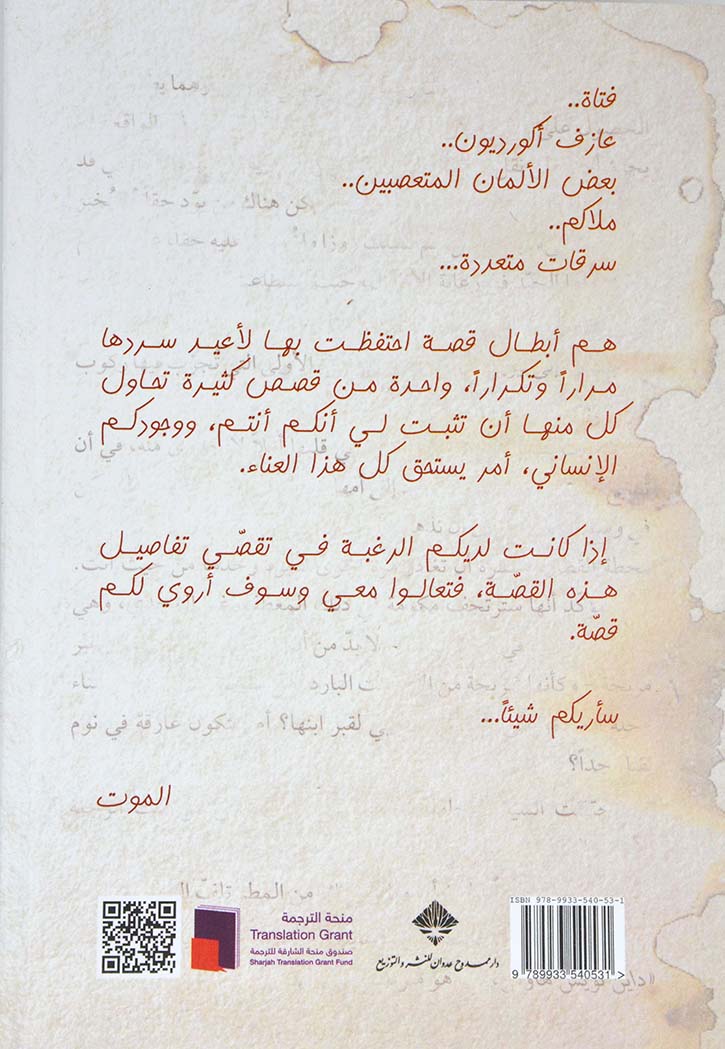 فتاة..
عازف أكورديون..
بعض الألمان المتعصبين..
ملاكم..
سرقات متعددة...
هم أبطال قصة احتفظت بها لأعيد سردها
مراراً وتكراراً، واحدة من قصص كثيرة تحاول
كل منها أن تثبت لي أنكم أنتم، ووجودكم
الإنساني، أمر يستحق كل هذا العناء.
إذا كانت لديكم الرغبة في تقصّي تفاصيل
هذه القصّة، فتعالوا معي وسوف أروي لكم
قصّة.
سأريكم شيئاً...
الموت
منحة الترجمة
Translation Grant
صندوق منحة الشارقة للترجمة
Sharjah Translation Grant Fund
دار ممدوح عدوان للنشر والتوزيع
ISBN 978-9933-540-53-1
9 789933 540531 >